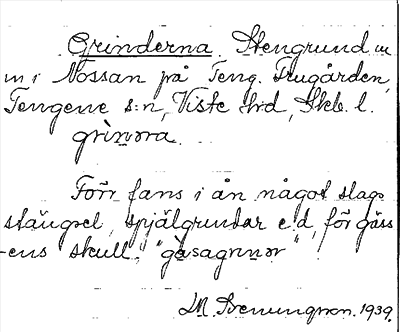 Grinderna. Stengrund m
m i Nossan på Teng. Frugården,
Tengene s:n, Viste hrd, Skb. l.
grìnəra.
Förr fans i ån något slags
stängsel, spjälgrindar e.d, för gäss
-ens skull, "gåsagrinər".
M. Svenungson. 1939.